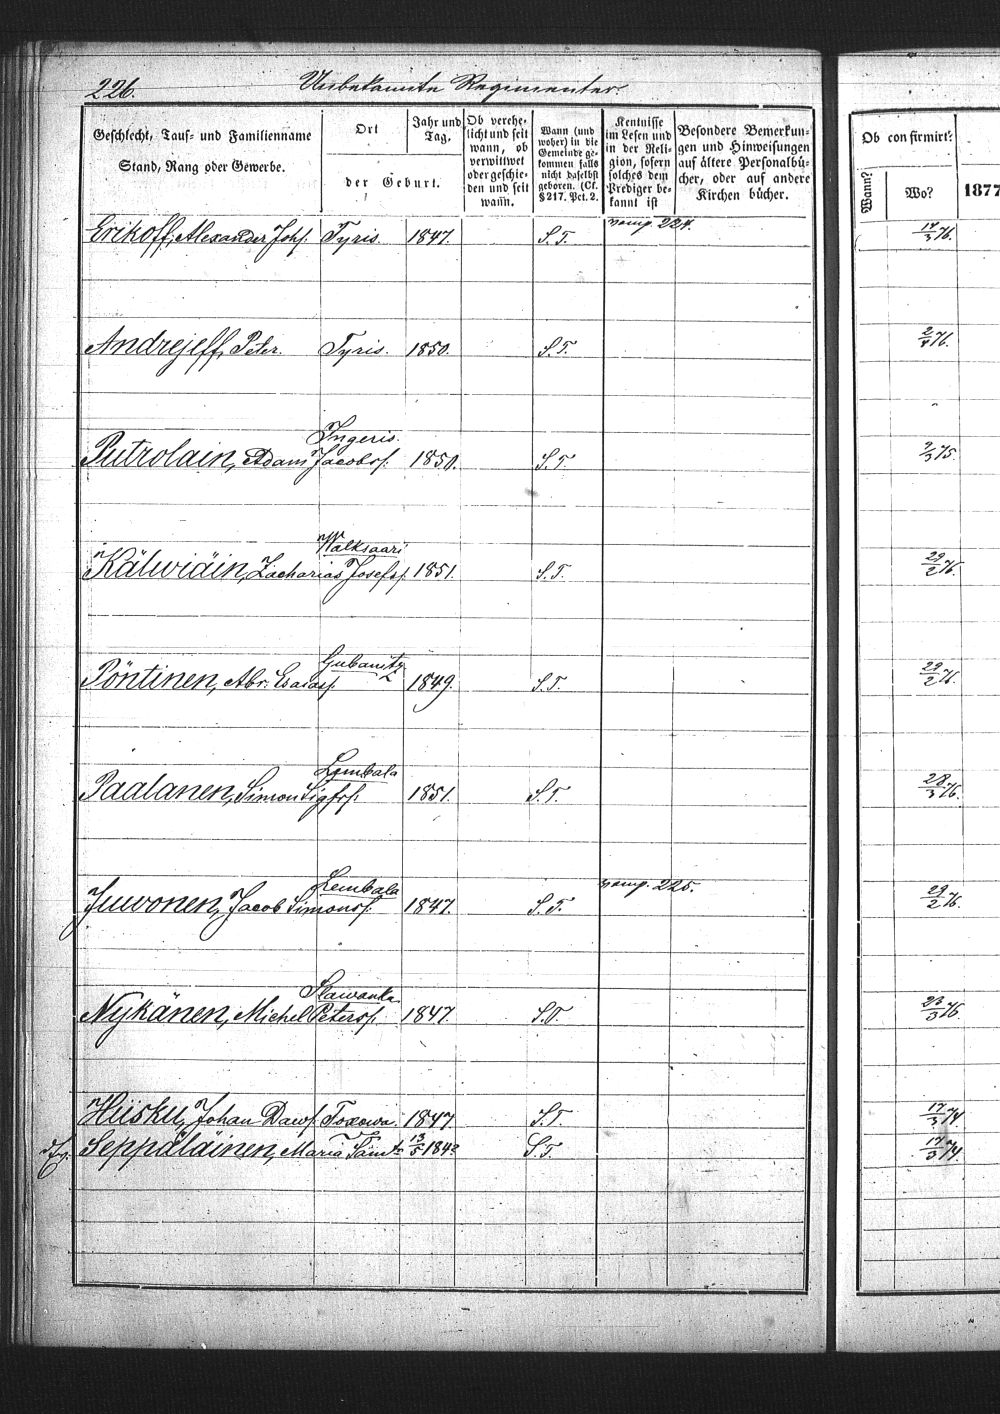 226.
Unbekannte Regimenter.
Geschlecht, Tauf- und Familienname
Stand, Rang oder Gewerbe.
Ort
Jahr und
Tag.
der Geburt.
Ob verehe-
licht und seit
wann, ob
verwittwet
oder geschie-
den und seit
wañ.
Wann (und
woher) in die
Gemeinde ge-
kommen falls
nicht daselbst
geboren. (Cf.
§ 217. Pct. 2.
Kentnisse
im Lesen und
in der Reli-
gion, sofern
solches dem
Prediger be-
kannt ist
Besondere Bemerkun-
gen und Hinweisungen
auf ältere Personalbü-
cher, oder auf andere
Kirchen bücher.
Ob confirmirt?
Wann?
Wo?
1877
Erikoff, Alexander Johs. Tyris. 1847. S. T. 224. 14/3 76.
Andrejeff, Peter. Tyris. 1850. S. T. 2/4 76.
Ingeris.
Putrolain, Adam Jacobs. 1850. S. T. 9/3 75.
Walksaari
Kälwiäin, Zacharias Josefs. 1851. S. T. 29/2 76.
Gubanitz
Pöntinen, Abr. Esaiass. 1849. S. T. 29/2 76.
Lembala
Paalanen, Simon Sigfrs. 1851. S. T. 28/3 76.
Lembala
Juwonen, Jacob Simons. 1847. S. T. 225. 29/2 76.
Slawanka
Nykänen, Michel Peters. 1847. S. T. 23/3 76.
Hiisku, Johan Daws. Toxowa. 1847. S. T. 17/3 74.
Seppäläinen, Maria 13/5 184? S. T. 17/3 74.